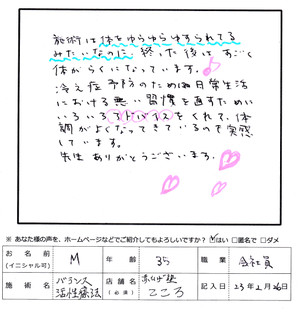 施術は体をゆらゆらゆすられてる
みたいなのに、終った後はすごく
体がらくになっています。
冷え症予防のための日常生活
における悪い習慣を直すためい
ろいろアドバイスをくれて、体
調がよくなってきているので実感
しています。
先生ありがとうございます。
※ あなた様の声を、ホームページなどでご紹介してもよろしいですか? ☑はい □匿名で □ダメ
お名前 (イニシャル可) M 年齢 35 職業 会社員
施術名 バランス活性療法 店舗名 (必須) こころ 記入日 23年2月26日